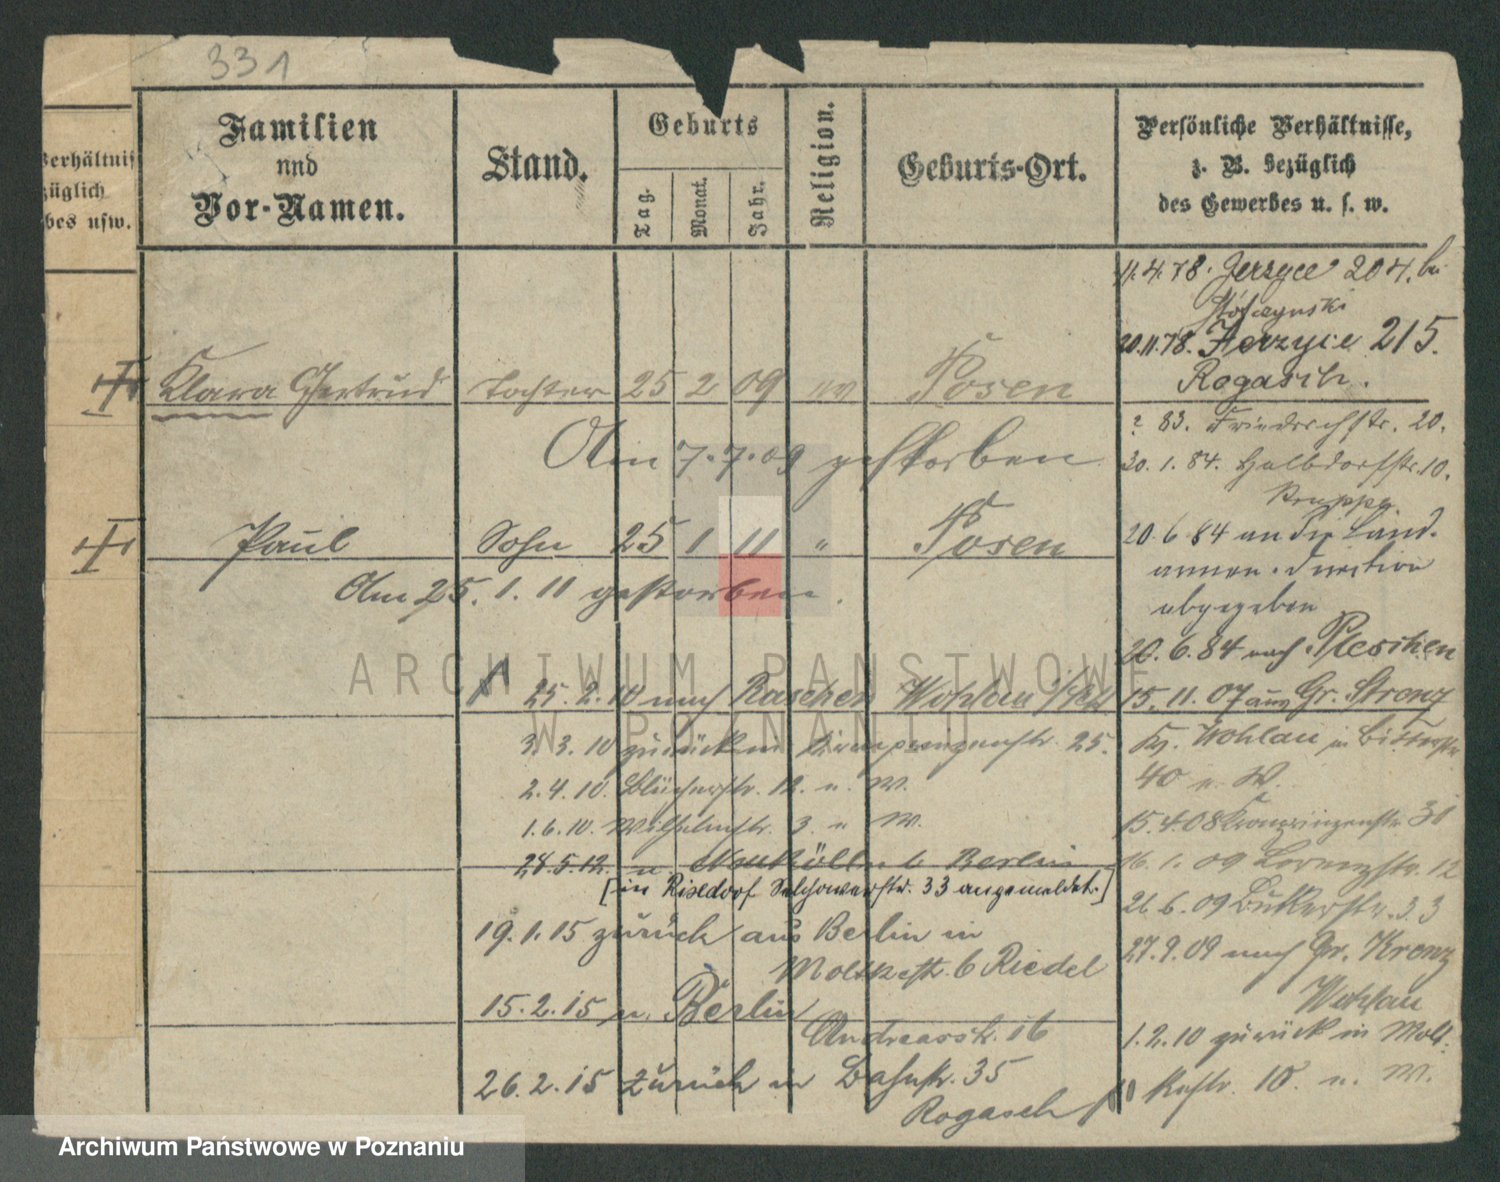 331
Verhältnis
züglich
bes usw.
Familien
und
Vor-Namen.
Stand.
Geburts
Tag.
Monat.
Jahr.
Religion.
Geburts-Ort.
Persönliche Verhältnisse,
z. B. bezüglich
des Gewerbes u. s. w.
11.4.78. Jerzyce 204. bei
20.11.78. Jerzyce 215.
Rogasch.
Klara Gertrud Tochter 25 2 09 ev Posen
Am 7.7.09 gestorben
? 83. Friedrichstr. 20.
30.1.84. Halbdorfstr. 10.
Paul Sohn 25 1 11 " Posen
Am 25.1.11 gestorben.
20.6.84 an die Land-
armen-Direction
abgegeben
20.6.84 nach Pleschen
25.2.10 nach Raschen Wohlau
15.11.07 aus Gr. Strenz
3.3.10 zurück in Kronprinzenstr. 25.
Kr. Wohlau in
40 u. W.
2.4.10. Blücherstr. 12. u. W.
1.6.10. Wilhelmstr. 3. u W.
15.4.08 Kronprinzenstr. 31
28.5.12. n. Neukölln b Berlin
[in Rixdorf Selchowerstr. 33 angemeldet.]
16.1.09 Lorenzstr. 12
26.6.09 Bukerstr. 33
19.1.15 zurück aus Berlin in
Moltkestr. 6 Riedel
27.9.09 nach Gr. Krenz
Wohlau
15.2.15 n. Berlin
Andreasstr. 16
1.2.10 zurück in Molt-
kestr. 10. u. W.
26.2.15 zurück in Bahnstr. 35
Rogasch
ARCHIWUM PAŃSTWOWE
W POZNANIU
Archiwum Państwowe w Poznaniu